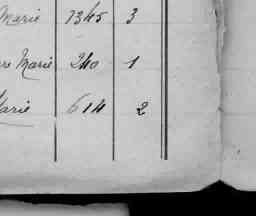 Marie 1345 3
re Marie 240 1
Marie 614 2